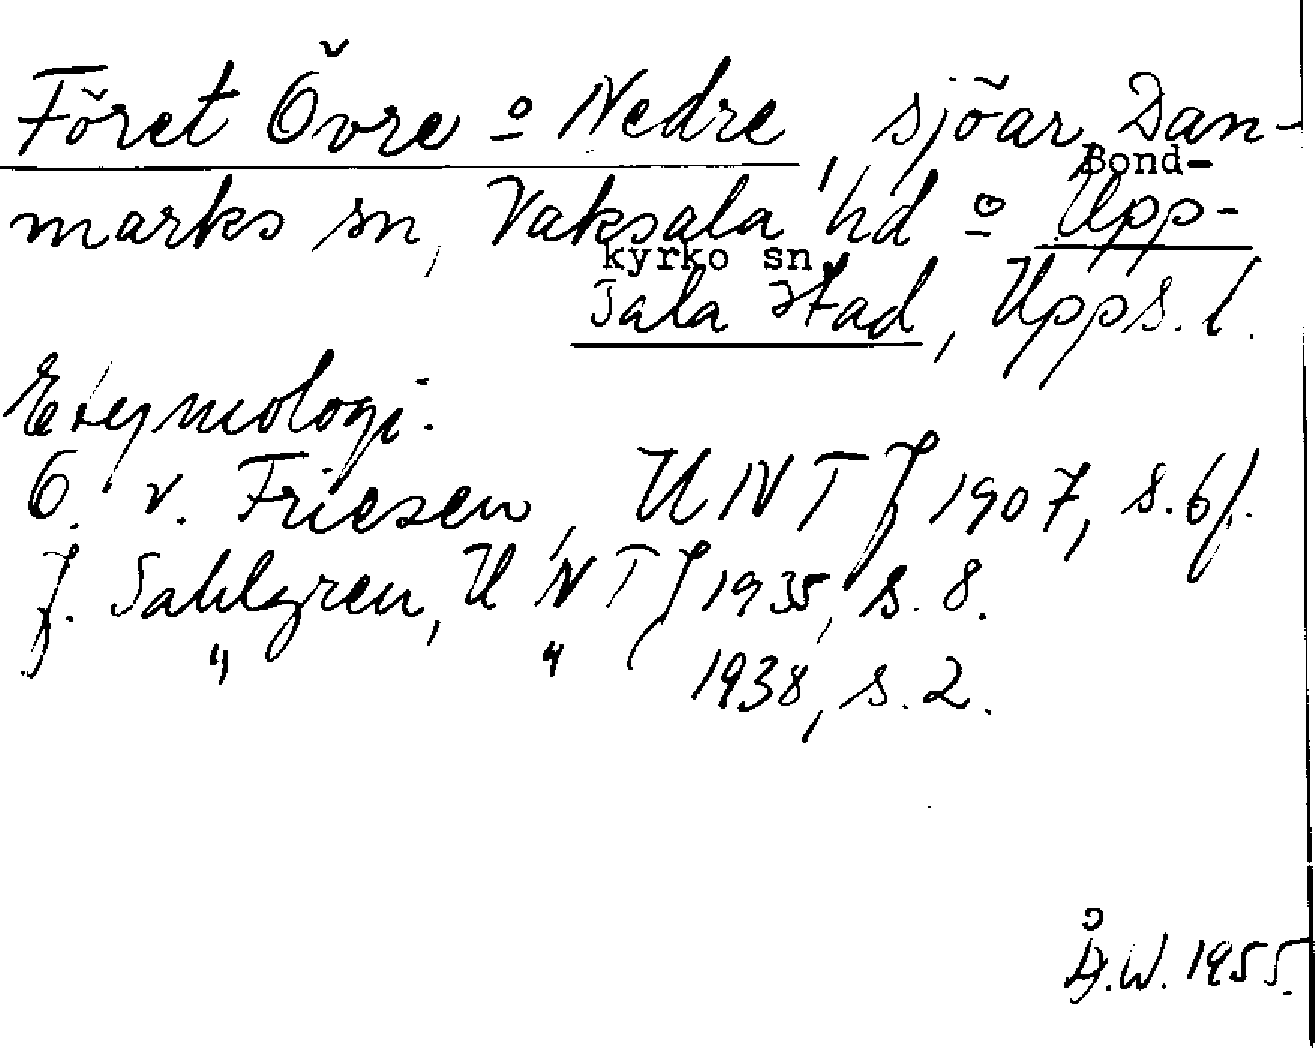 Föret Övre o Nedre, sjöar, Dan-
Bond-
marks sn, Vaksala hd o Upp-
kyrko sn
sala stad, Upps. l.
Etymologi:
O. v. Friesen, UNTJ 1907, s. 6f.
J. Sahlgren, UNTJ 1935, s. 8.
" " 1938, s. 2.
Å.W. 1955.